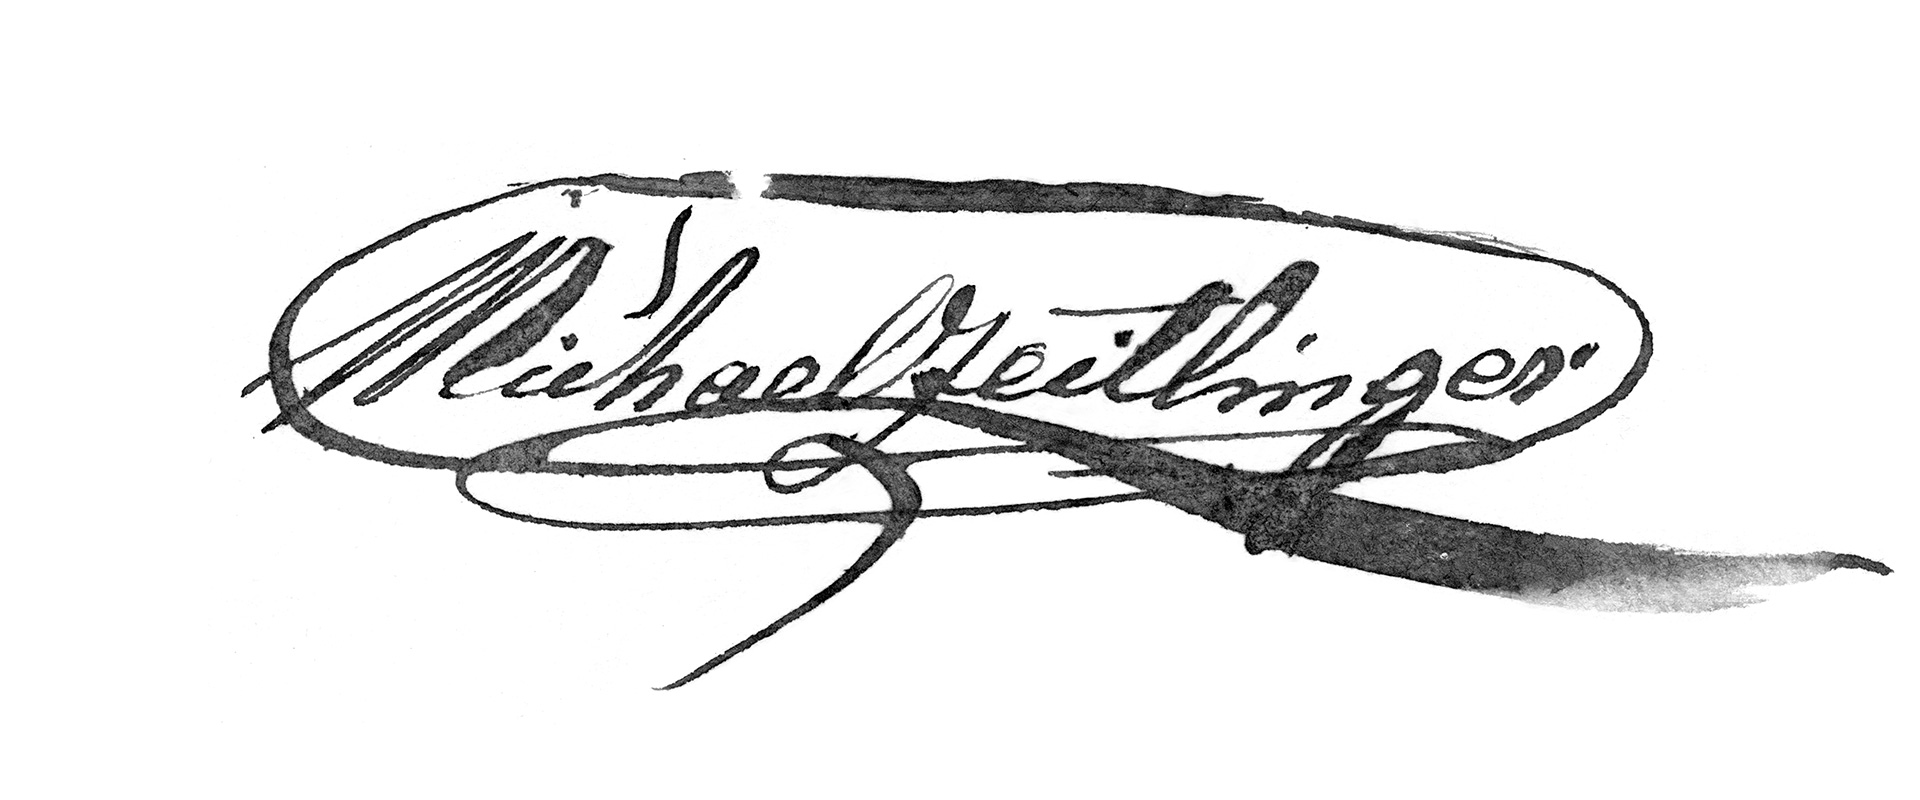 Michael Zeitlinger